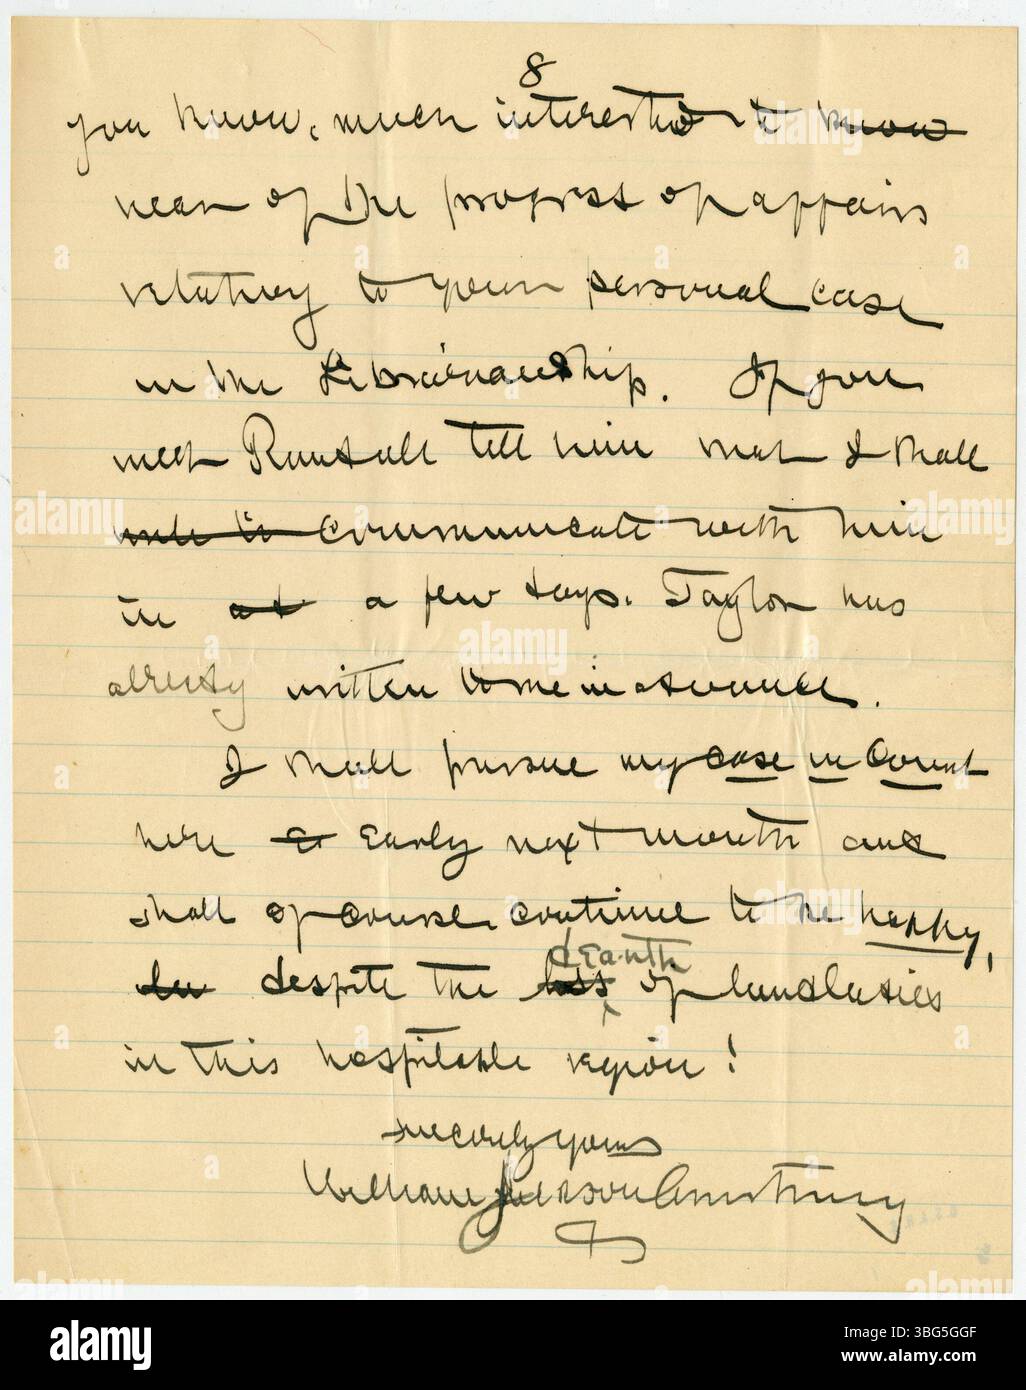 8
you know, much interested to ~~know~~
hear of the progress of affairs
relating to your personal case
in the Librarianship. If you
meet Randall tell him that I shall
communicate with him
in ~~at~~ a few days. Taylor has
already written to me in advance.
I shall pursue my case in Court
here early next month and
shall of course continue to be happy,
despite the ~~loss~~ dearth of landladies
in this hospitable region!
Sincerely yours
William Jackson Armstrong
alamy
Image ID: 3BG5GGF
www.alamy.com